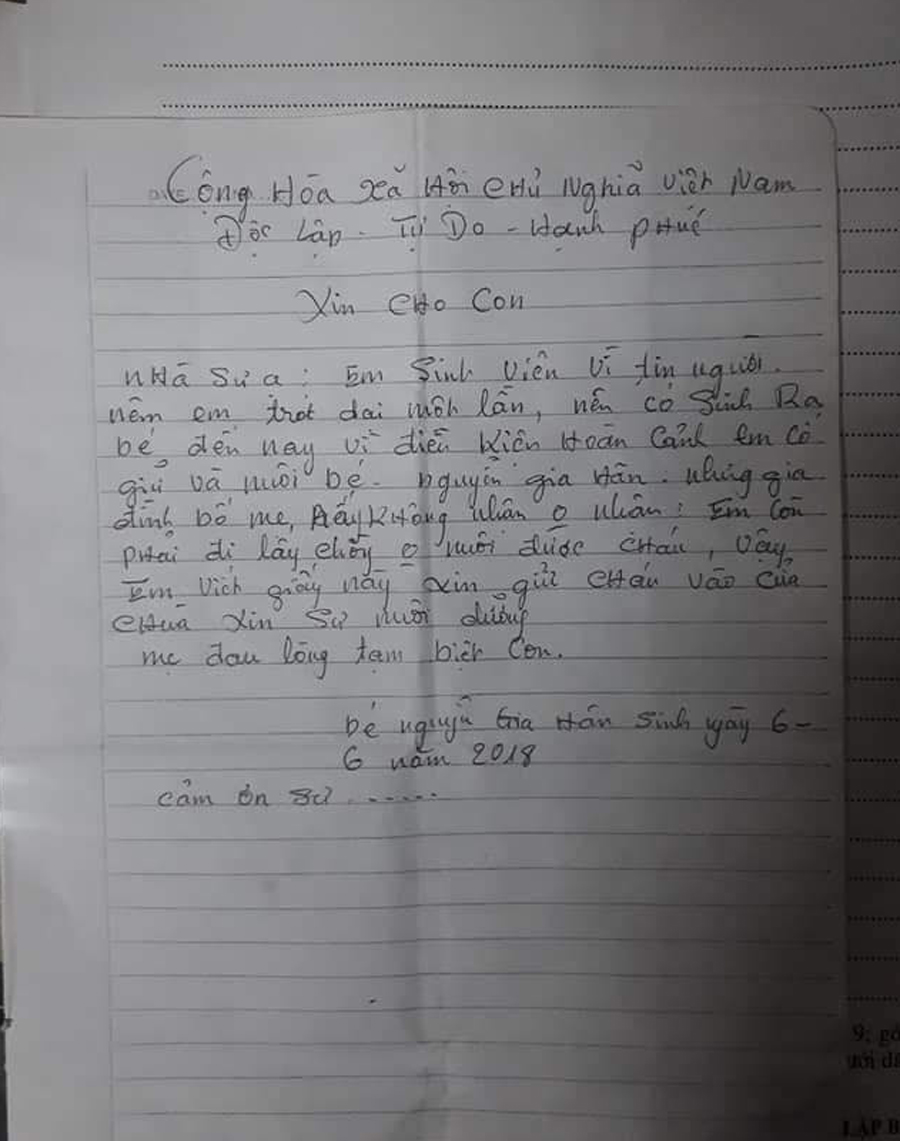 Cộng Hòa Xã Hội CHủ Nghĩa Việt Nam
Độc Lập - Tự Do - Hạnh PHúc
Xin CHo Con
NHà Sư ạ: Em Sinh Viên Vì tin người.
nêm em trót dại môt lần, nên có Sinh Ra
bé, đến nay vì điều kiên Hoàn Cảnh em Cố
giữ và nuôi bé - nguyễn gia Hân. nhưng gia
đình bố mẹ, Ấy KHông nhân o nhân: Em Còn
PHải đi lấy CHồng o nuôi được CHáu, Vậy
Em Vich giấy này xin gửi CHáu Vào Cửa
CHùa Xin Sư nuôi dưỡng
mẹ đau lòng tạm biệt Con.
bé nguyễ Gia Hân Sinh gày 6-
6 năm 2018
cảm ơn Sư ......
9; gó
ưới dâ
LẬP B